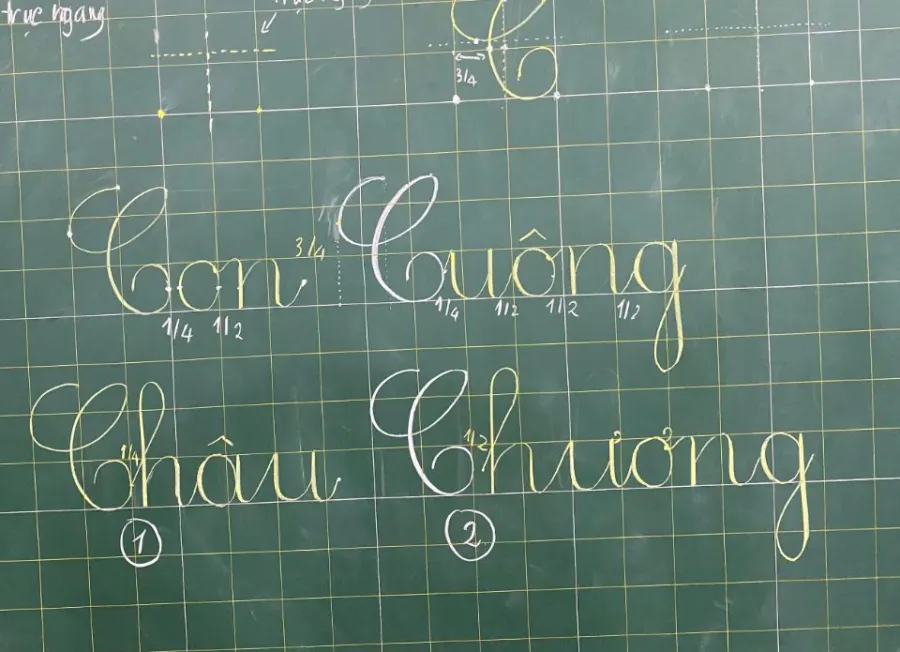 trục ngang
3/4
C
Con 3/4 Cuông
1/4 1/2 1/4 1/2 1/2 1/2
Châu Chương
1/4 1/2
1 2